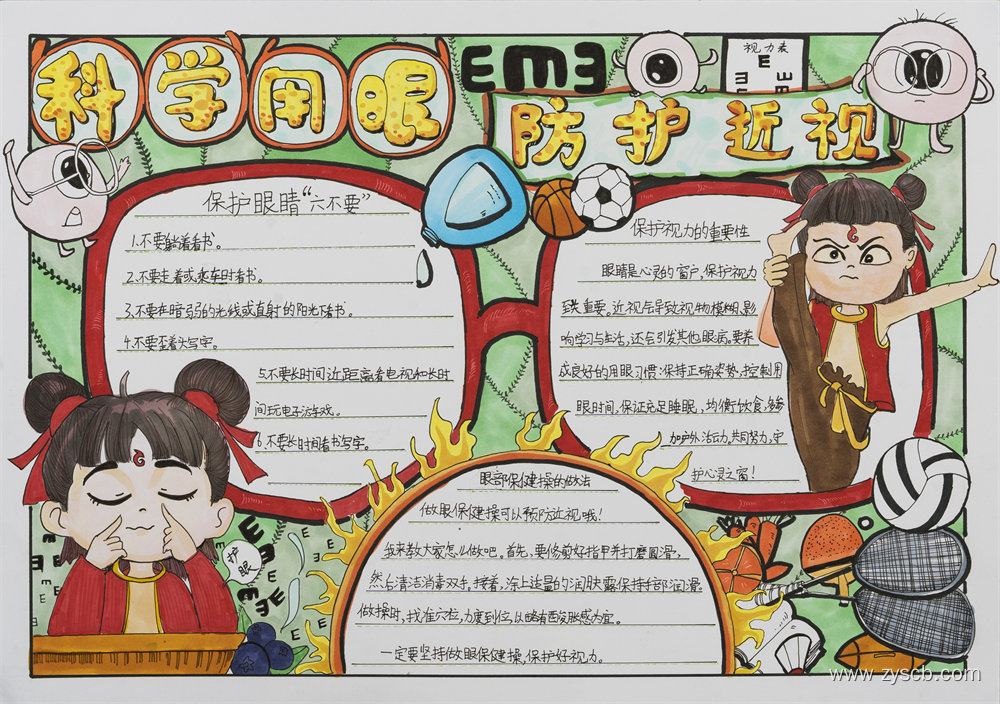 科学用眼
E m ヨ
视力表
E
防护近视
保护眼睛“六不要”
1.不要躺着看书。
2.不要走着或乘车时看书。
3.不要在暗弱的光线或直射的阳光下看书。
4.不要歪着头写字。
5.不要长时间近距离看电视和长时
间玩电子游戏。
6.不要长时间看书写字。
保护视力的重要性
眼睛是心灵的窗户,保护视力
至关重要。近视会导致视物模糊,影
响学习与生活,还会引发其他眼病。要养
成良好的用眼习惯:保持正确姿势,控制用
眼时间,保证充足睡眠,均衡饮食,多参
加户外活动,共同努力,守
护心灵之窗!
护眼
眼部保健操的做法
做眼保健操可以预防近视哦!
我来教大家怎么做吧。首先,要修剪好指甲并打磨圆滑,
然后清洁消毒双手。接着,涂上适量的润肤露保持手部润滑。
做操时,找准穴位,力度到位,以略有酸胀感为宜。
一定要坚持做眼保健操,保护好视力。
www.zyscb.com